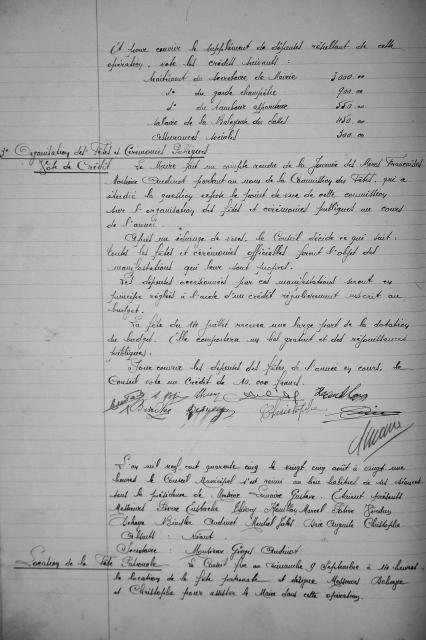 Et pour couvrir le supplément de dépenses résultant de cette
opération, vote les crédits suivants :
traitement du Secrétaire de Mairie 3000.00
d° du garde champêtre 900.00
d° du tambour afficheur 550.00
salaire de la Balayeuse des salles 450.00
assurances sociales 300.00
3° Organisation des Fêtes et Cérémonies Publiques
Vote de Crédit Le Maire fait un compte rendu de la Journée des Mères Françaises
Monsieur Oudinot parlant au nom de la Commission des Fêtes, qui a
étudié la question expose le point de vue de cette commission
sur l'organisation des fêtes et cérémonies publiques au cours
de l'année.
Après un échange de vues, le Conseil décide ce qui suit :
Toutes les fêtes et cérémonies officielles feront l'objet des
manifestations qui leur sont propres.
Les dépenses occasionnées par ces manifestations seront en
principe réglées à l'aide d'un crédit régulièrement inscrit au
budget.
La fête du 14 juillet recevra une large part de la dotation
du budget. Elle comportera un bal gratuit et des réjouissances
publiques.
Pour couvrir les dépenses des fêtes de l'année en cours, le
Conseil vote un Crédit de 10.000 francs.
Christophe
L'an mil neuf cent quarante cinq le vingt cinq août à vingt une
heures le Conseil Municipal s'est réuni au lieu habituel de ses séances
sous la présidence de Gustave. Étaient présents
Messieurs Pierre Eustache Thiery Marcel
Oudinot Auguste Christophe
Absents : Néant
Secrétaire : Monsieur Oudinot
Location de la Fête Patronale Le Conseil fixe au dimanche 9 Septembre à 11 heures
la location de la fête patronale et désigne Messieurs
et Christophe pour assister le Maire dans cette opération.